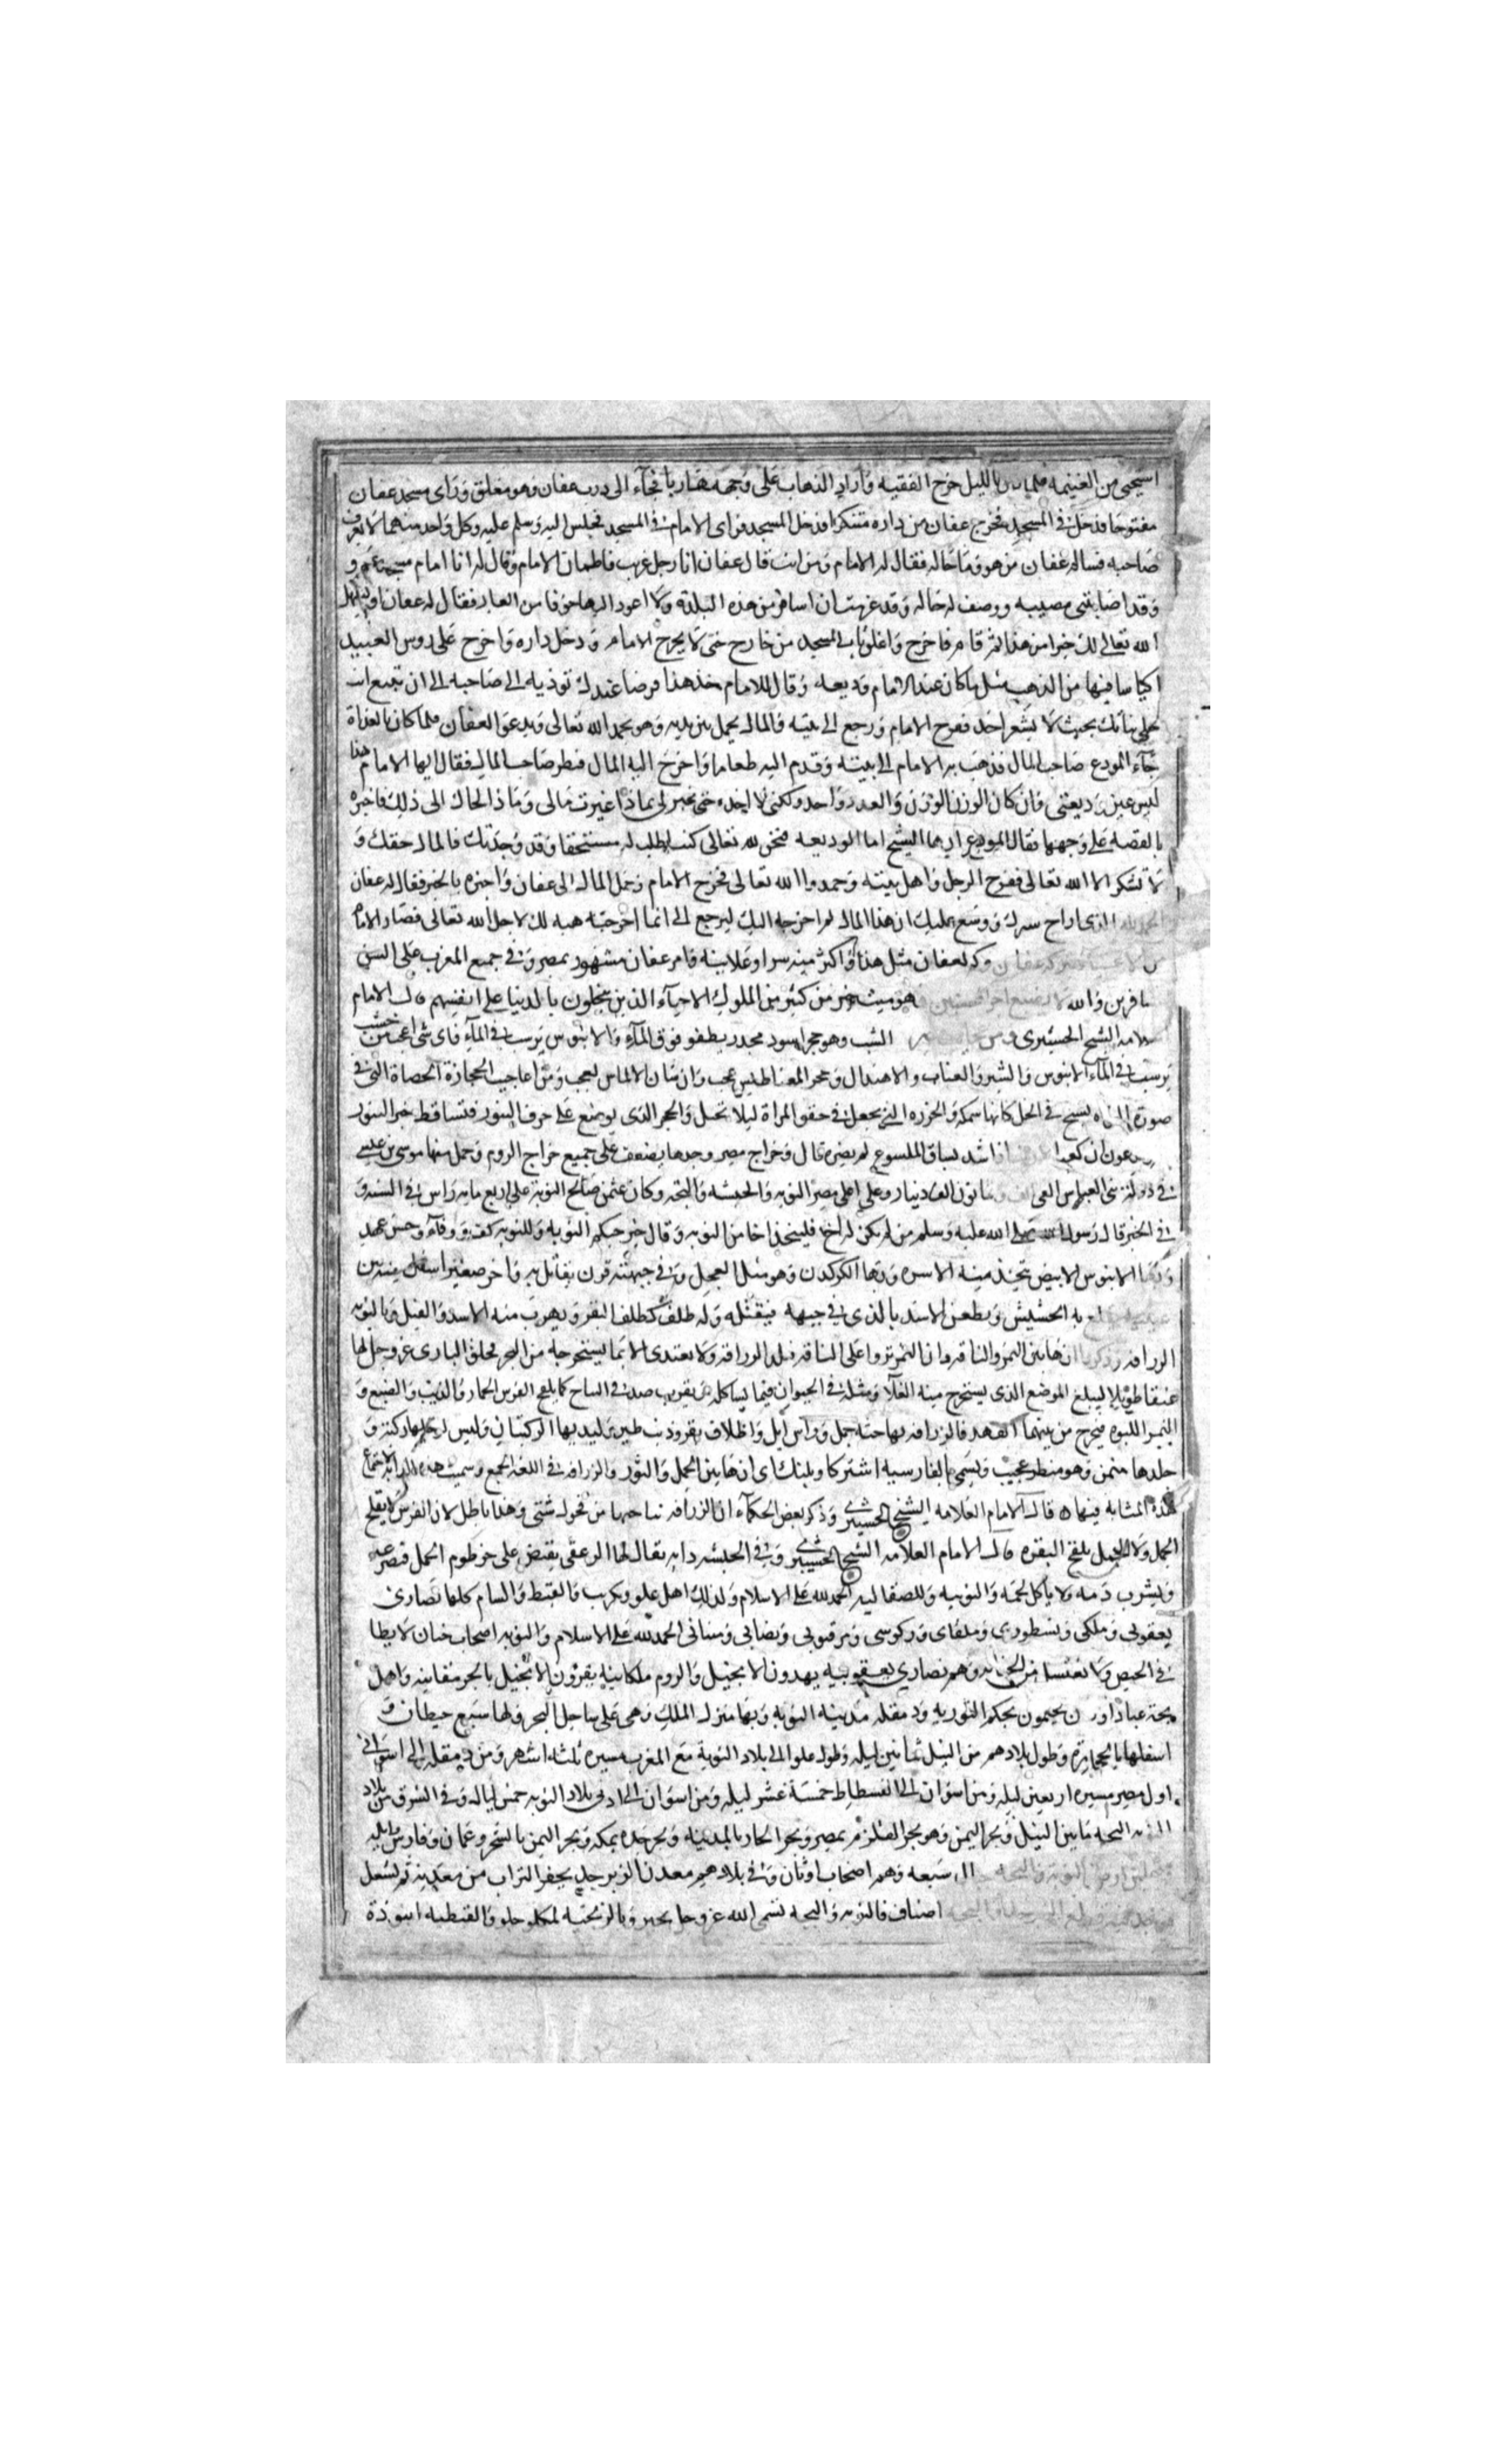 استحيى من الغنيمه فلما كان بالليل خرج الفقيه وأراد الذهاب على وجهه هاربا فجآء الى درب عفان وهو مغلق وراى مسجد عفان
مفتوحا فدخل في المسجد فخرج عفان من داره متنكرا فدخل المسجد فراى الامام في المسجد فجلس اليه وسلم عليه وكل واحد منهما لا يعرف
صاحبه فساله عفان من هو وما حاله فقال له الامام ومن انت قال عفان انا رجل غريب فاطمان الامام وقال له انا امام مسجد
وقد اصابتنى مصيبه ووصف له حاله وقد عزمت ان اسافر من هذه البلدة ولا اعود اليها خوفا من العار فقال له عفان
الله تعالى لك خيرا من هذا ثم قام فاخرج واغلق باب المسجد من خارج حتى لا يخرج الامام ودخل داره واخرج على روس العبيد
اكياسا فيها من الذهب مثل ما كان عند الامام وديعه وقال للامام خذ هذا قرضا عندك توذيه الى صاحبه الى ان
بحيث لا يشعر احد ففرح الامام ورجع الى بيته والمال يحمل بين يديه وهو يحمد الله تعالى ويدعوا لعفان فلما كان بالغداة
جآء المودع صاحب المال فذهب به الامام الى بيته وقدم اليه طعاما واخرج اليه المال فنظر صاحب المال فقال ايها الامام هذا
ليس عين وديعتى وان كان الوزن الوزن والعدد واحد ولكنى لا اخذه حتى تخبرنى بماذا غيرت مالى وماذا الحال الى ذلك فاخبره
بالقصه على وجهها فقال المودع ايها الشيخ اما الوديعه فحق لله تعالى كنت اطلب له مستحقا وقد وجدتك فالمال حقك و
لا تشكر الا الله تعالى ففرح الرجل واهل بيته وحمدوا الله تعالى فخرج الامام وحمل المال الى عفان واخبره بالخبر فقال له عفان
الحمد لله الذى اراح سرك ووسع عليك ان هذا المال لم اخرجه اليك ليرجع الى انما اخرجته هبه لك لاجل الله تعالى فصار الامام
من الاغنيا ببركة عفان وكم لعفان مثل هذا واكثر منه سرا وعلانيه فامر عفان مشهور بمصر وفى جميع المغرب على السن
المسافرين والله لا يضيع اجر المحسنين هو ميت خير من كثير من الملوك الاحيآء الذين يبخلون بالدنيا على انفسهم قال الامام
العلامه الشيخ الحسيبرى الشب وهو حجر اسود مجدر يطفو فوق المآء والابنوس يرسب في المآء فاى شى اعجب من خشب
يرسب في المآء الابنوس والشيز والعناب والاهندال وحجر المغناطيس عجب وان شان الالماس لعجب ومن اعاجيب الحجارة الحصاة التى في
صورة يسبح في الخل كانها سمكه والخرزه التى تجعل في حقو المراة ليلا تحبل والحجر الذى يوضع على حرف التنور فتساقط خبز التنور
شد بساق الملسوع لم يضره قال وخراج مصر وحدها يضعف على جميع خراج الروم وحمل منها موسى بن عيسى
في دولة بنى العباس الفى الف دينار وعلى اهل مصر النوبه والحبشه والبجه وكان عثمن صالح النوبة على اربع مايه راس في السنه و
في الخبر قال رسول الله صلى الله عليه وسلم من لم يكن له اخ فليتخذ اخا من النوبه وقال خير حبكم النوبه وللنوبه وفآء وحسن عهد
وبها الابنوس الابيض يتخذ منه الاسره وبها الكركدن وهو مثل العجل وفى جبهته قرن يقاتل به واخر صغير اسفل منه بين
عينيه به الحشيش ويطعن الاسد بالذى في جبهه فيقتله وله ظلف كظلف البقر ويهرب منه الاسد والفيل وبالنوبه
الزرافه وذكروا انها بين النمر والناقه وان النمر تزوا على الناقه فتلد الزرافه ولا يغتذى الا بما يستخرجه من البحر فخلق البارى عز وجل لها
عنقا طويلا ليبلغ الموضع الذى يستخرج منه الغذآ ومثله في الحيوان فيما يشاكله كما يلقح الفرس الحمار والذيب والضبع و
النمر اللبوه فيخرج من بينهما الفهد فالزرافه لها جثة جمل وراس ايل واظلاف بقر وذنب طير وليديها الركبتان وليس لرجليها ركبتان و
جلدها منمر وهو منظر عجيب وتسمى بالفارسيه اشتركاو بلنك اى انها بين الجمل والثور والزرافه في اللغه الجمع وسميت هذه الدابه لاجتماع
هذه المشابه فيها ه قال الامام العلامه الشيخ الحسيبرى وذكر بعض الحكمآء ان الزرافه نتاجها من فحول شتى وهذا باطل لان الفرس لا يلقح
الجمل ولا الجمل يلقح البقره قال الامام العلامه الشيخ الحسيبرى وفى الحبشه دابه يقال لها الرعقى يقبض على خرطوم الجمل فيصرعه
ويشرب دمه ولا ياكل لحمه والنوبه وللصقالبه الحمد لله على الاسلام ولذلك اهل علو وتكريت والقبط والشام كلها نصارى
يعقوبى وملكى ونسطورى الحمد لله على الاسلام والنوبه اصحاب ختان لا يطا
في الحيض ولا تغتسل من الجنابه وهم نصارى يعقوبيه يهدون الانجيل والروم ملكانيه يقرون الانجيل بالجرمقانيه واهل
بجه عباد اوثان يحكمون بحكم التوريه ودمقله مدينه النوبه وبها منزل الملك وهى على ساحل البحر ولها سبع حيطان و
اسفلها بالحجارة وطول بلادهم من النيل ثمانين ليله وطول علو الى بلاد النوبة مع المغرب مسيره ثلثه اشهر ومن دمقله الى اسوان في
اول مصر مسيره اربعين ليله ومن اسوان الى الفسطاط خمسة عشر ليله ومن اسوان الى ادنى بلاد النوبه خمس ليال وفى الشرق من بلاد
النوبه البجه ما بين النيل وبحر اليمن وهو بحر القلزم بمصر وبحر الجار بالمدينه وبحر جده بمكه وبحر اليمن بالشحر وعمان وفارس وابله
النوبه والبجه سبعه وهم اصحاب اوثان وفى بلادهم معدن الزبرجد يحفر التراب من معدنه ثم يغسل
اصناف فالنوبه والبجه تسمى الله عز وجل وبالزنجيه لمكلوجلو والقبطيه